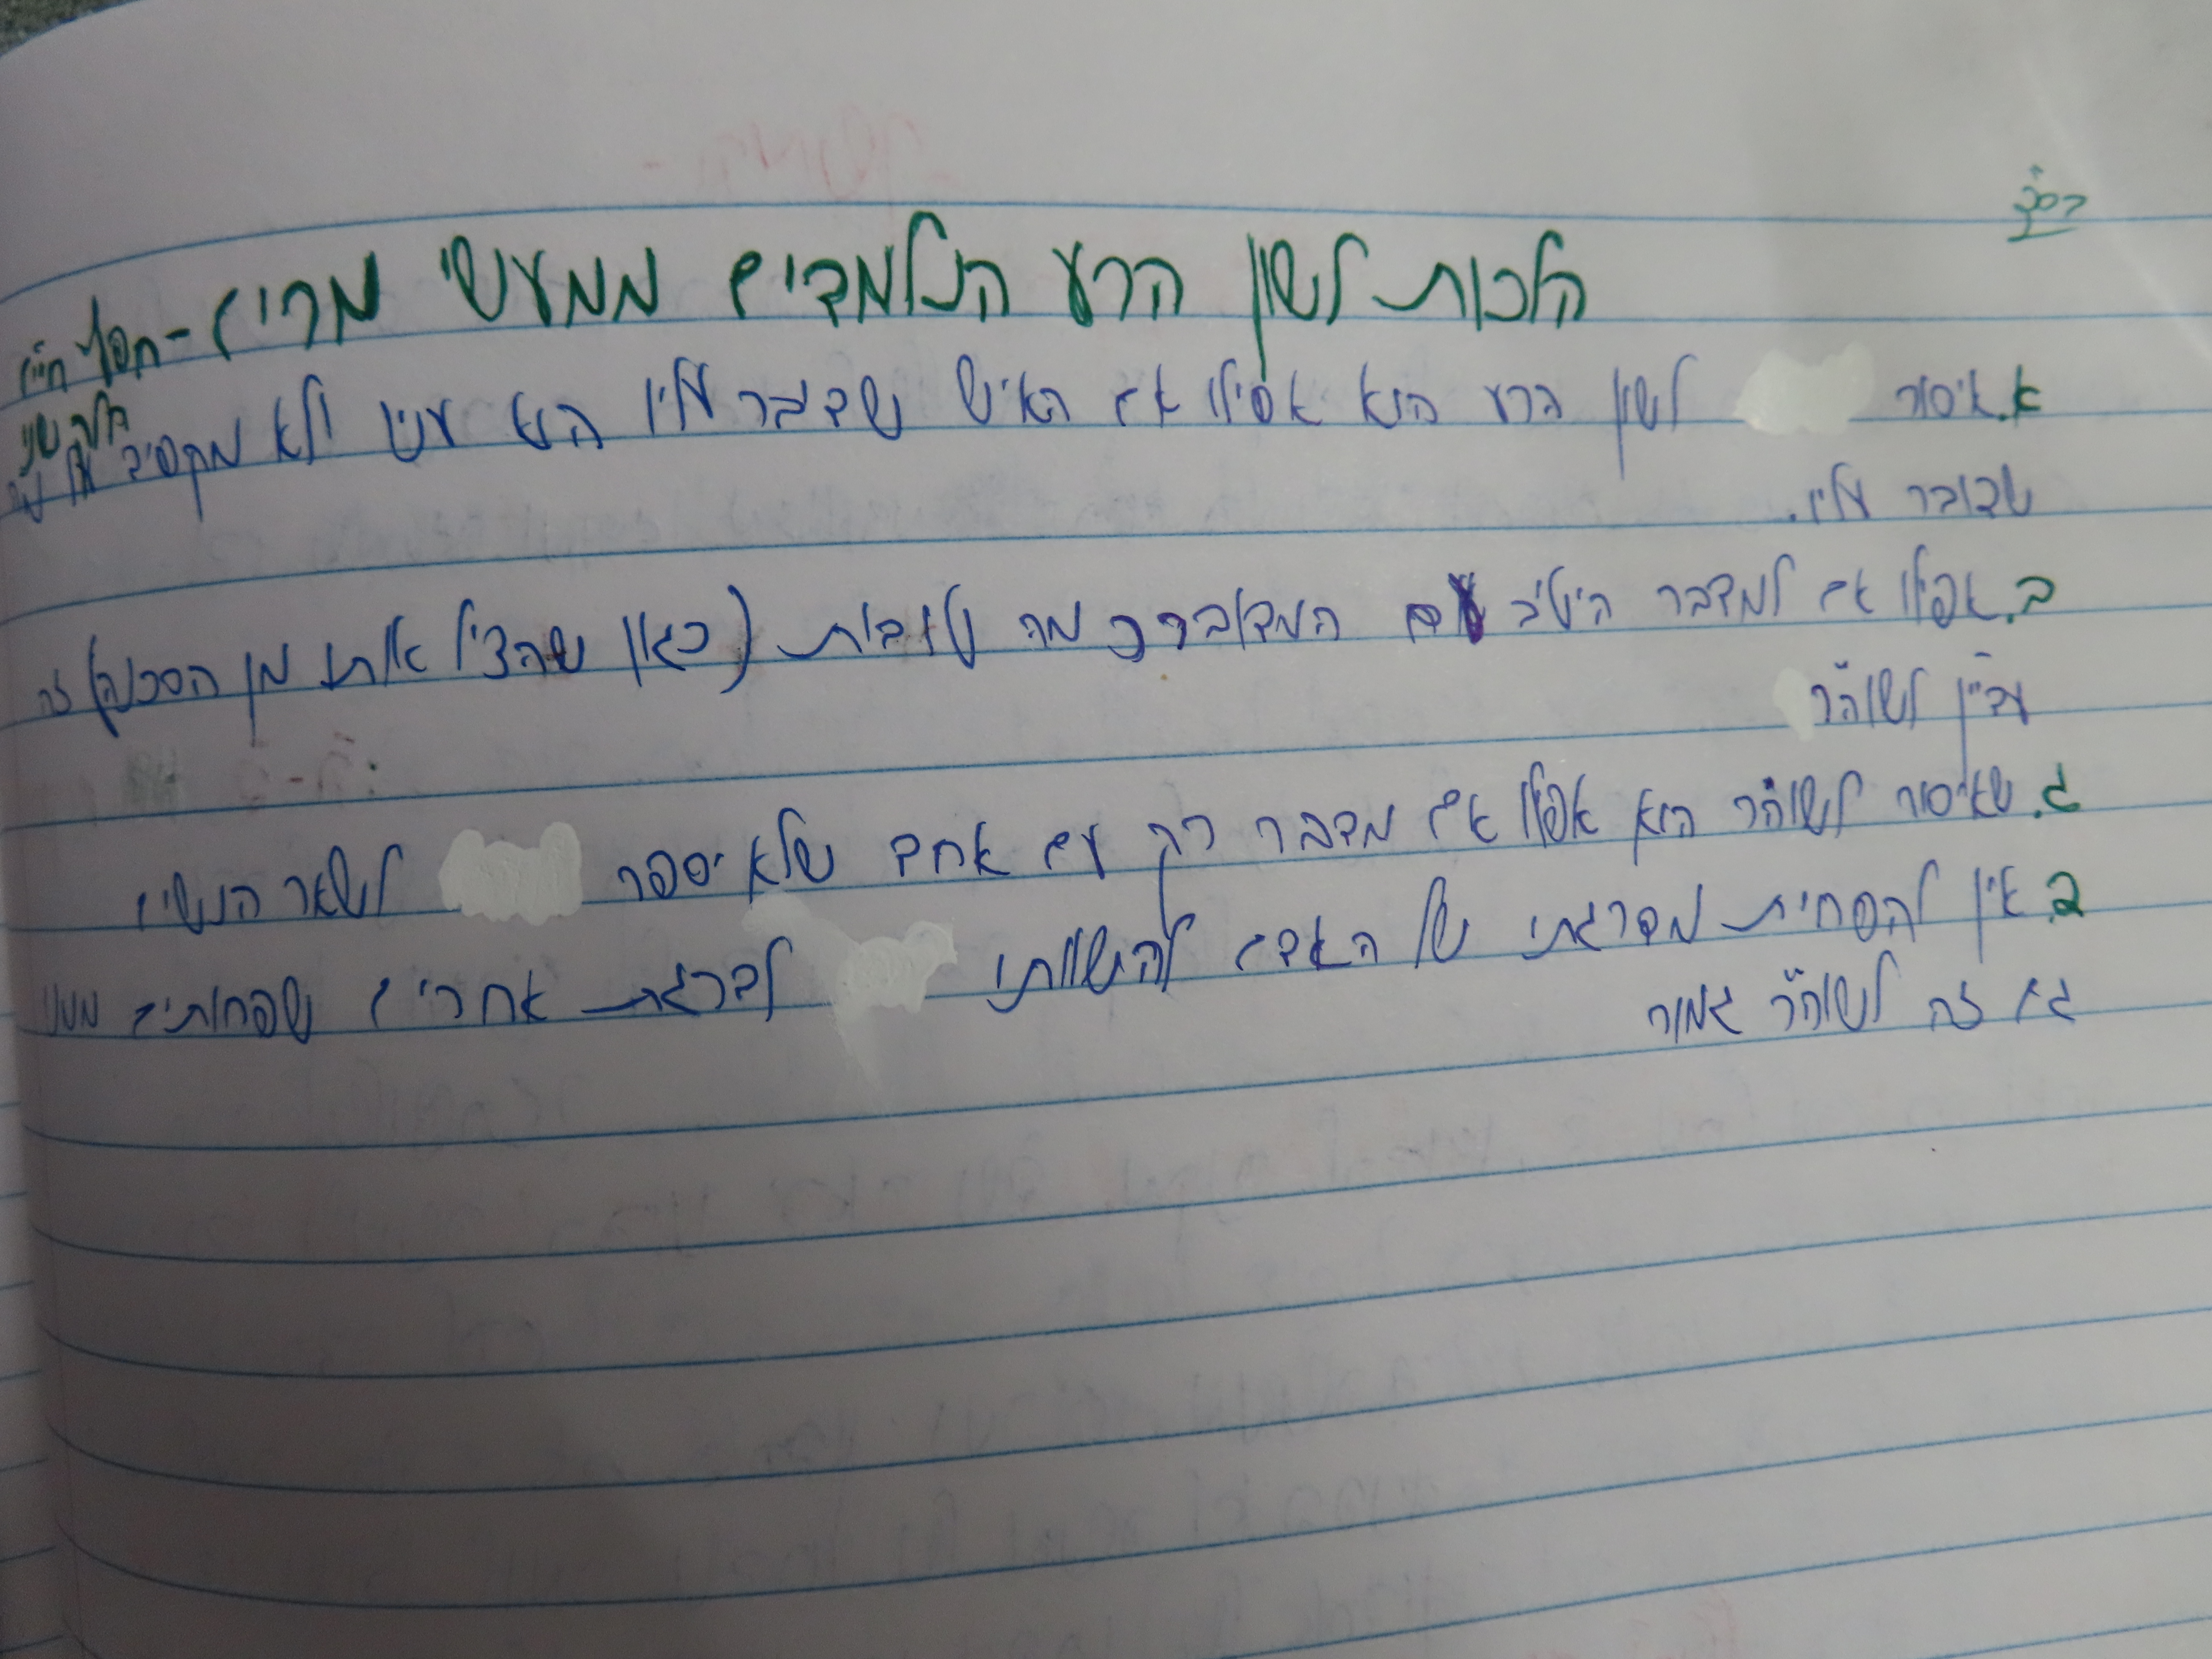 בס"ד
הלכות לשון הרע הנלמדים ממעשי מרים - חפץ חיים
א. איסור לשון הרע הוא אפילו אם האיש שדבר עליו הוא עניו ולא מקפיד על
שדובר עליו.
ב. אפילו אם למדבר היטיב עם המדובר כמה טובות (כגון שהציל אותו מן הסכנה) זה
עדיין לשוה"ר
ג. שאיסור לשוה"ר הוא אפילו אם מדבר רק עם אחד שלא יספר לשאר הנשים
ב. אין להפחית מדרגתו של האדם להשוותו לדרגת אחרים שפחותים ממנו
גם זה לשוה"ר גמור